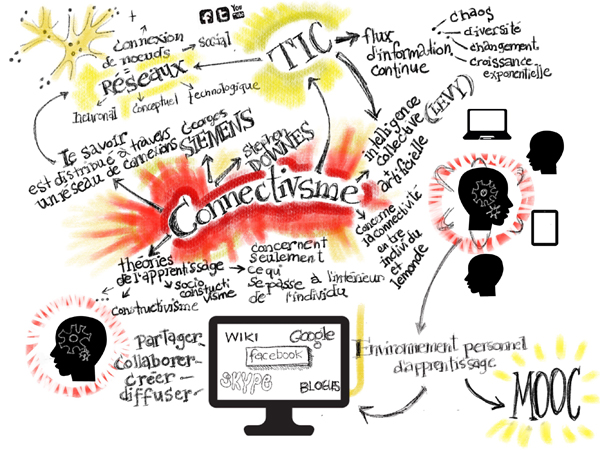 You
Tube
connexion
de noeuds
social
Réseaux
Neuronal
conceptuel
technologique
TIC
flux
d'information
continue
chaos
diversité
changement
croissance
exponentielle
le savoir
est distribué à travers
un réseau de connexions
Georges
SIEMENS
Stephen
DOWNES
intelligence
collective
(LEVY)
+
artificielle
Connectivsme
concerne
la connectivité
entre
individu
et
le monde
théories
de l'apprentissage
constructivisme
socio
constructi
visme
concernent
seulement
ce qui
se passe à l'intérieur
de l'individu
Partager
collaborer
créer
diffuser
WIKI
Google
facebook
SKYPE
BLOGUES
Environnement personnel
d'apprentissage
MOOC